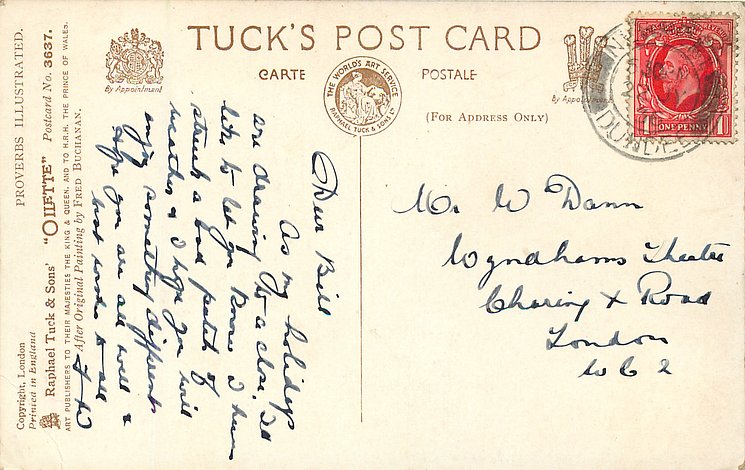 TUCK'S POST CARD
CARTE POSTALE
(FOR ADDRESS ONLY)
By Appointment
By Appointment
THE WORLD'S ART SERVICE
RAPHAEL TUCK & SONS LD
ONE PENNY
DUNDEE
PROVERBS ILLUSTRATED.
Raphael Tuck & Sons' "OILETTE" Postcard No. 3637.
ART PUBLISHERS TO THEIR MAJESTIES THE KING & QUEEN, AND TO H.R.H. THE PRINCE OF WALES.
After Original Painting by FRED BUCHANAN.
Copyright, London
Printed in England
Dear Bill
As my holidays
are drawing to a close. Id
like to let you know I have
struck a bad patch of
weather & I hope you will
enjoy something different
Hope you are all well &
best words to all
Mr W Dann
Wyndhams Theatre
Charing X Road
London
W C 2